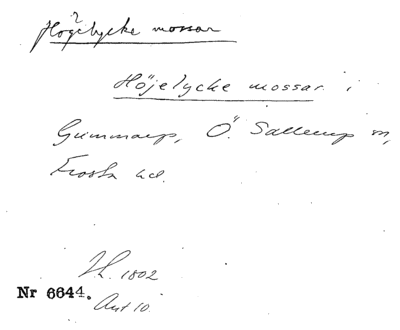 Högelycke mossar
Höjelycke mossar i
Gummarp, Ö. Sallerup sn,
Frosta hd.
Lh. 1802
Nr 6644.
Akt 10.